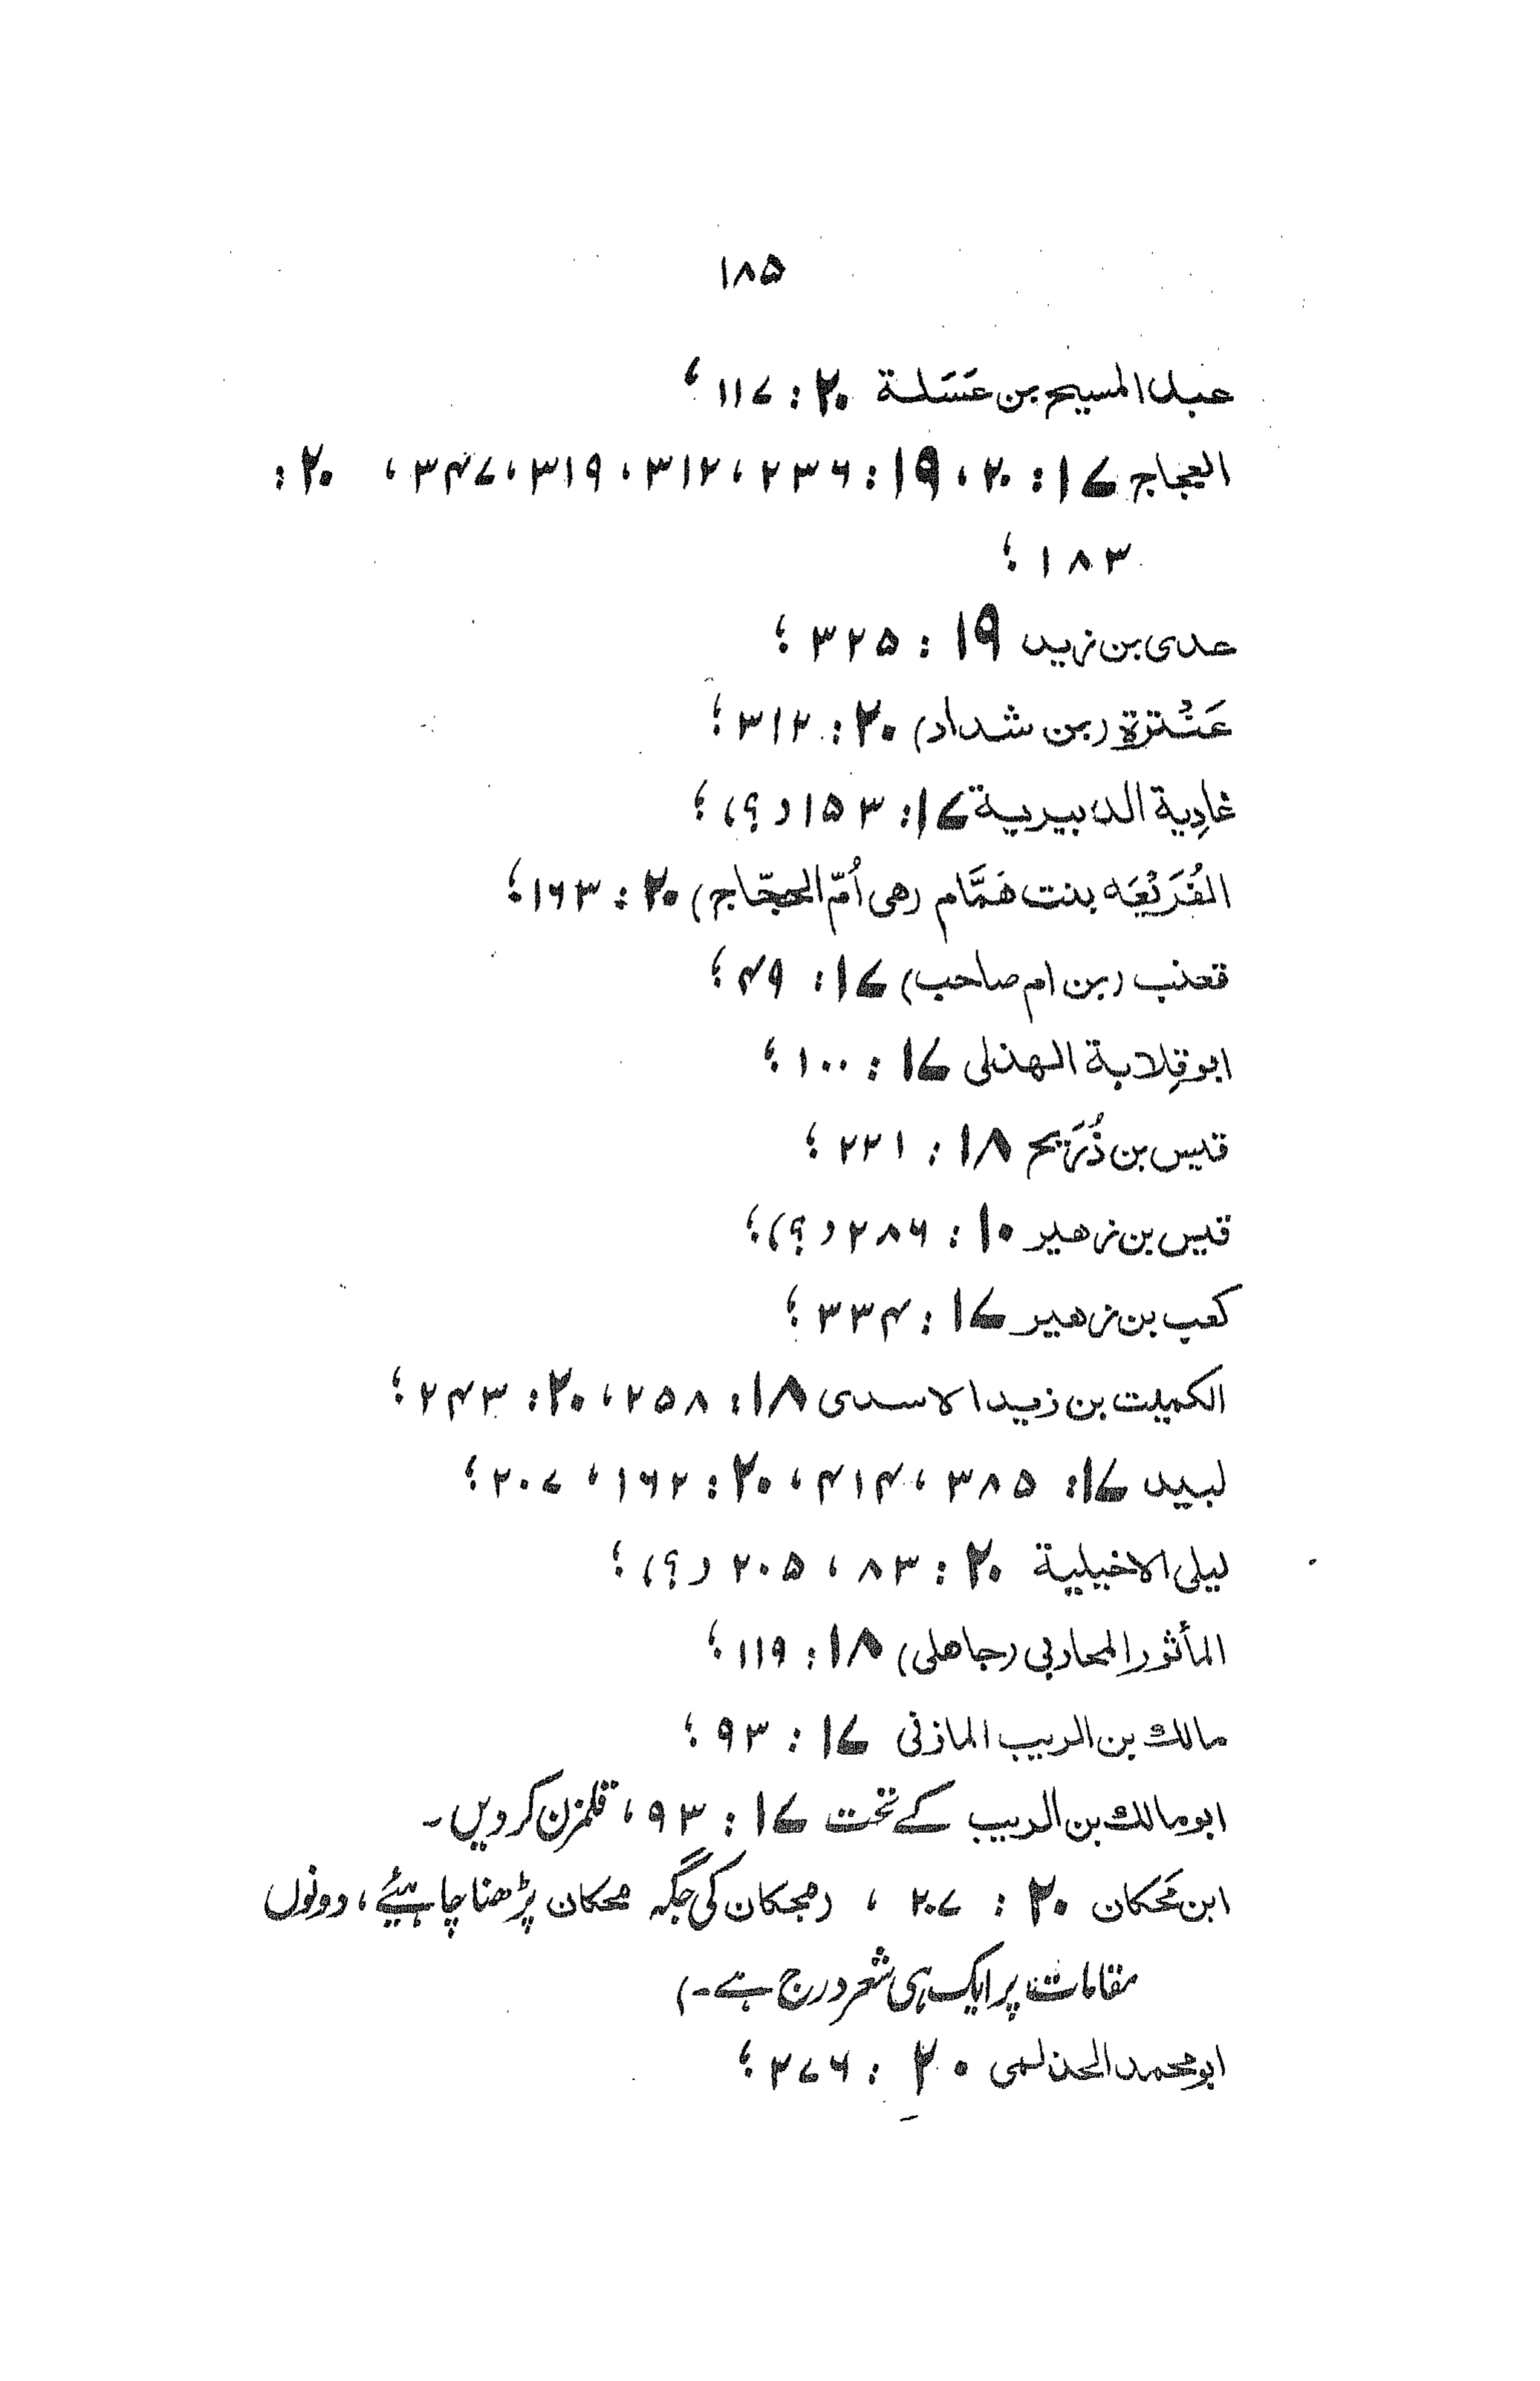 ۱۸۵
عبد المسیح بن عَسَلة ۲۰ : ۱۱۷ ؛
العجاج ۱۷ : ۲۰ ، ۱۹ : ۲۳۶ ، ۳۱۲ ، ۳۱۹ ، ۳۴۷ ، ۲۰ :
۱۸۳ ؛
عدی بن زید ۱۹ : ۳۲۵ ؛
عَنْترة (بن شداد) ۲۰ : ۳۱۲ ؛
غادِیة الدبیریة ۱۷ : ۱۵۳ (؟) ؛
الفُرَیْعَه بنت هَمَّام (هی اُمّ الحجّاج) ۲۰ : ۱۶۳ ؛
قعنب (بن ام صاحب) ۱۷ : ۴۹ ؛
ابو قِلابة الهذلی ۱۷ : ۱۰۰ ؛
قیس بن ذُرَیح ۱۸ : ۲۲۱ ؛
قیس بن زهیر ۱۰ : ۲۸۶ (؟) ؛
کعب بن زهیر ۱۷ : ۳۳۴ ؛
الکمیت بن زید الاسدی ۱۸ : ۲۵۸ ، ۲۰ : ۲۴۳ ؛
لبید ۱۷ : ۳۸۵ ، ۴۱۴ ، ۲۰ : ۱۶۲ ، ۲۰۷ ؛
لیلی الاخیلیة ۲۰ : ۸۳ ، ۲۰۵ (؟) ؛
المأثور المحاربی (جاهلی) ۱۸ : ۱۱۹ ؛
مالك بن الریب المازنی ۱۷ : ۹۳ ؛
ابو مالك بن الریب کے تحت ۱۷ : ۹۳ ، قلمزن کر دیں ۔
ابن مَحکان ۲۰ : ۲۰۷ ، (مجکان کی جگہ محکان پڑھنا چاہیئے ، دونوں
مقامات پر ایک ہی شعر درج ہے ۔)
ابو محمد الحذلمی ۲۰ : ۲۷۶ ؛